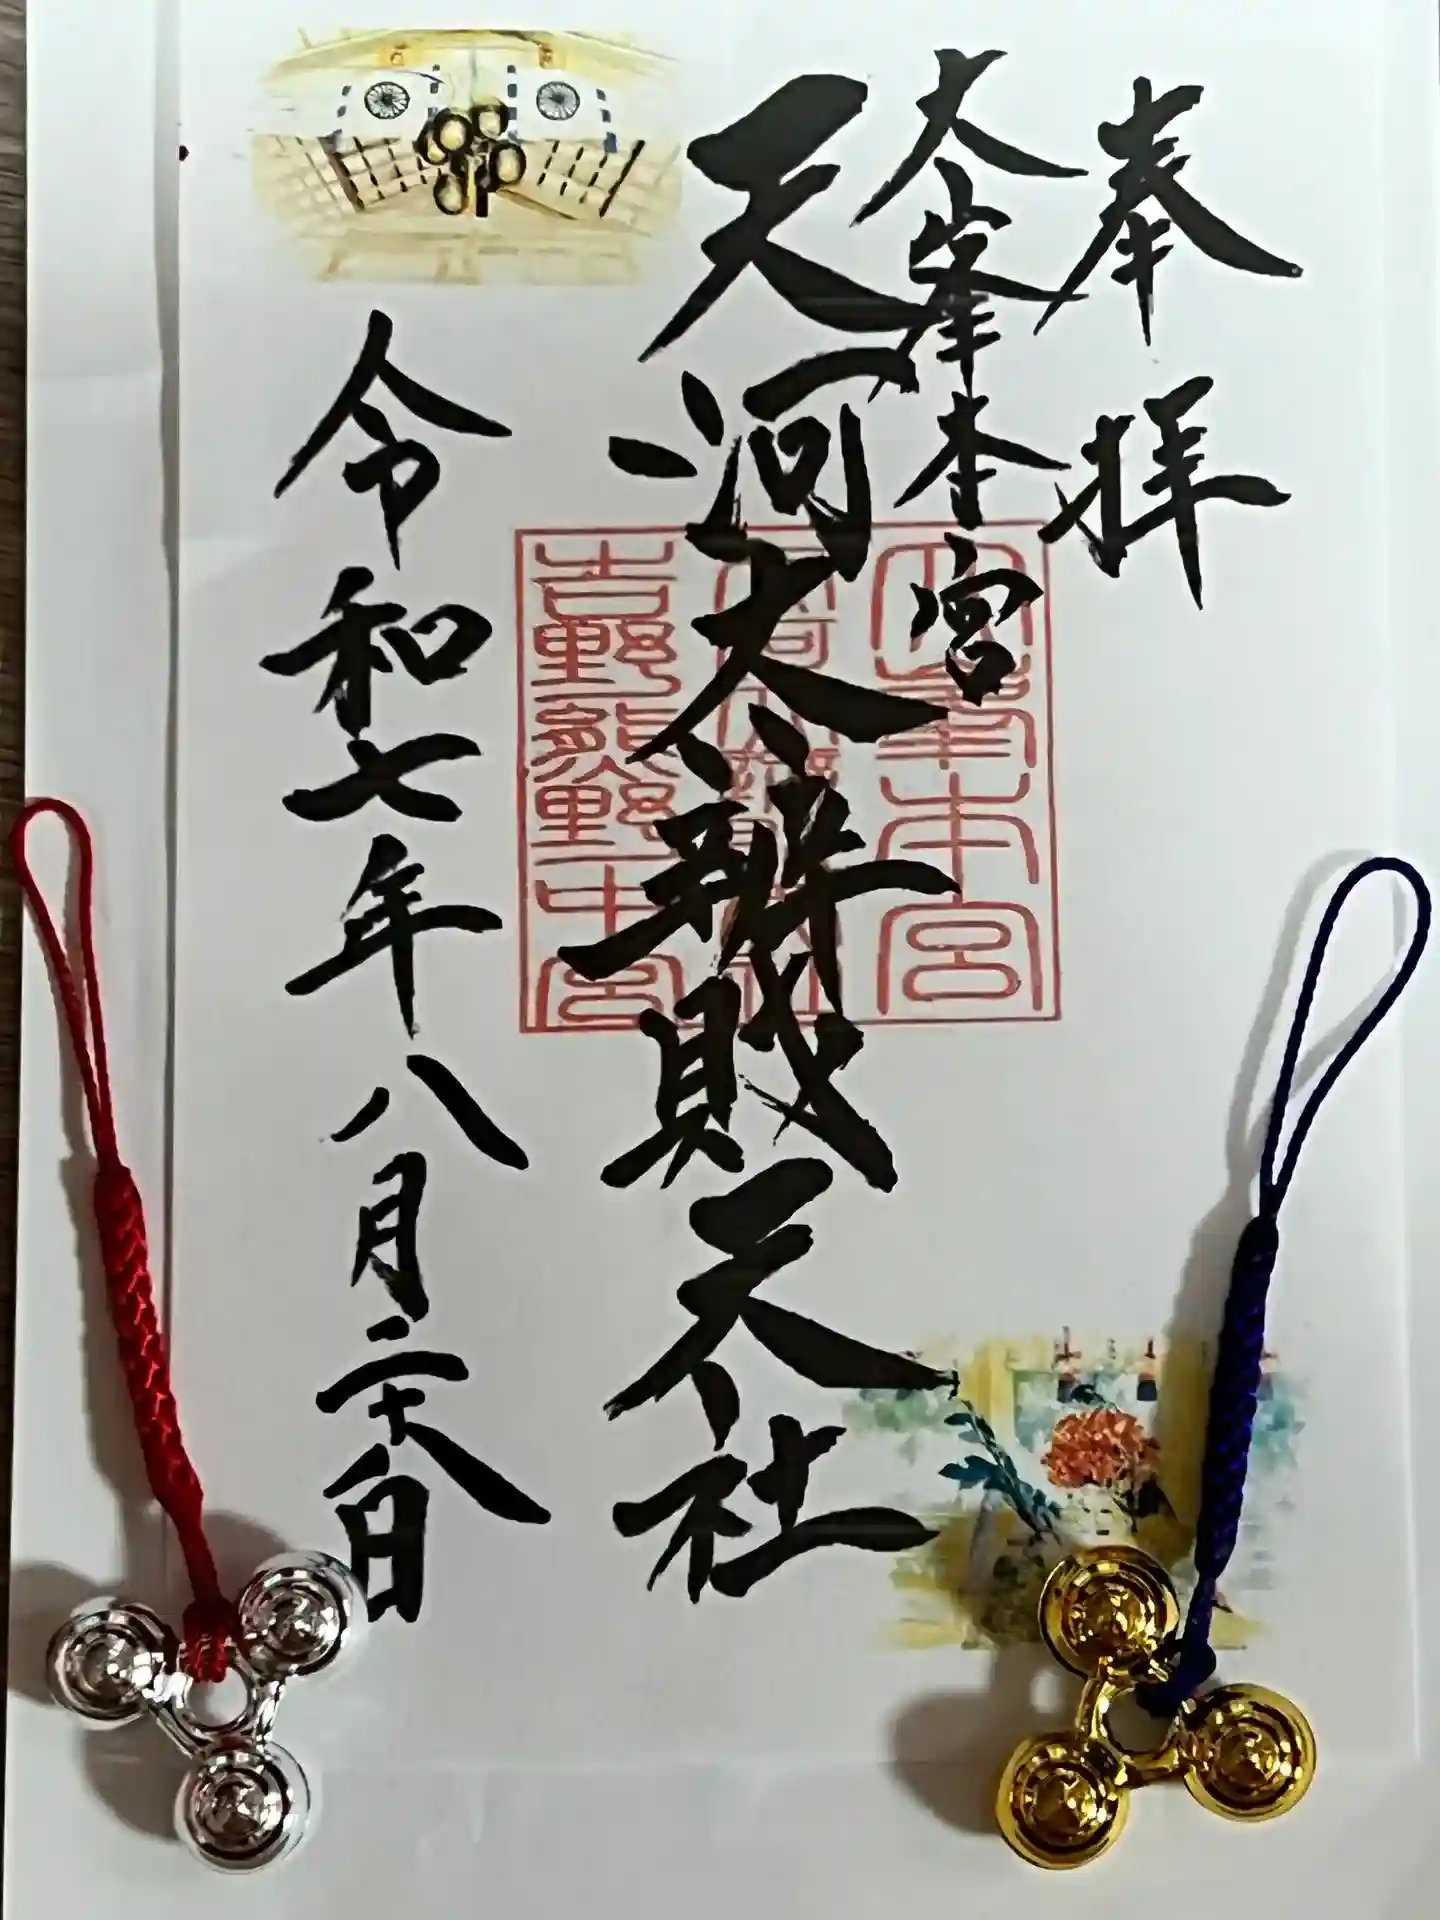 奉拝
大峯本宮
天河大辨財天社
令和七年八月二十八日
大峯本宮
吉野熊野中宮